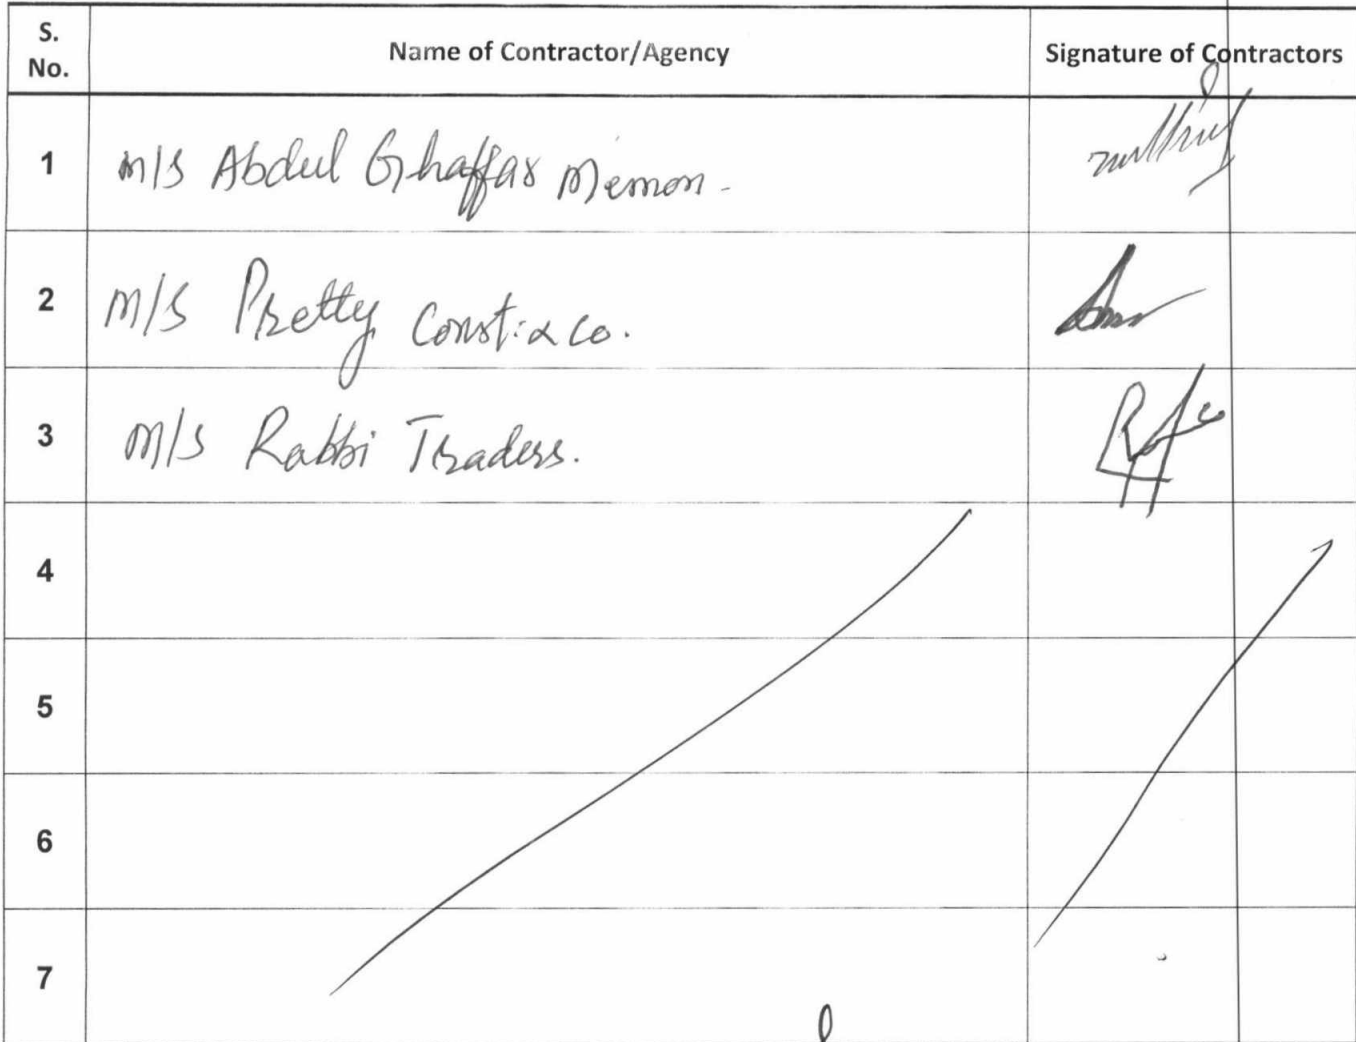 S. No. Name of Contractor/Agency Signature of Contractors
1 M/S Abdul Ghaffar Memon.
2 M/S Pretty Const: & Co.
3 M/S Rabbi Traders.
4
5
6
7